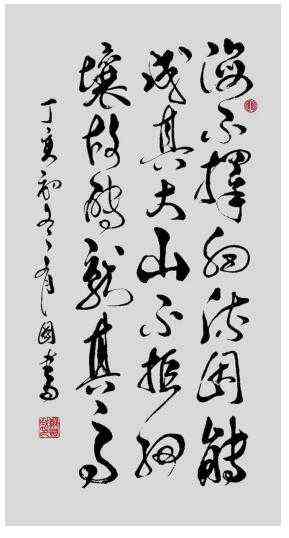 海不擇細流能
成其大山不拒細
壤故能就其高
丁亥初冬有國書